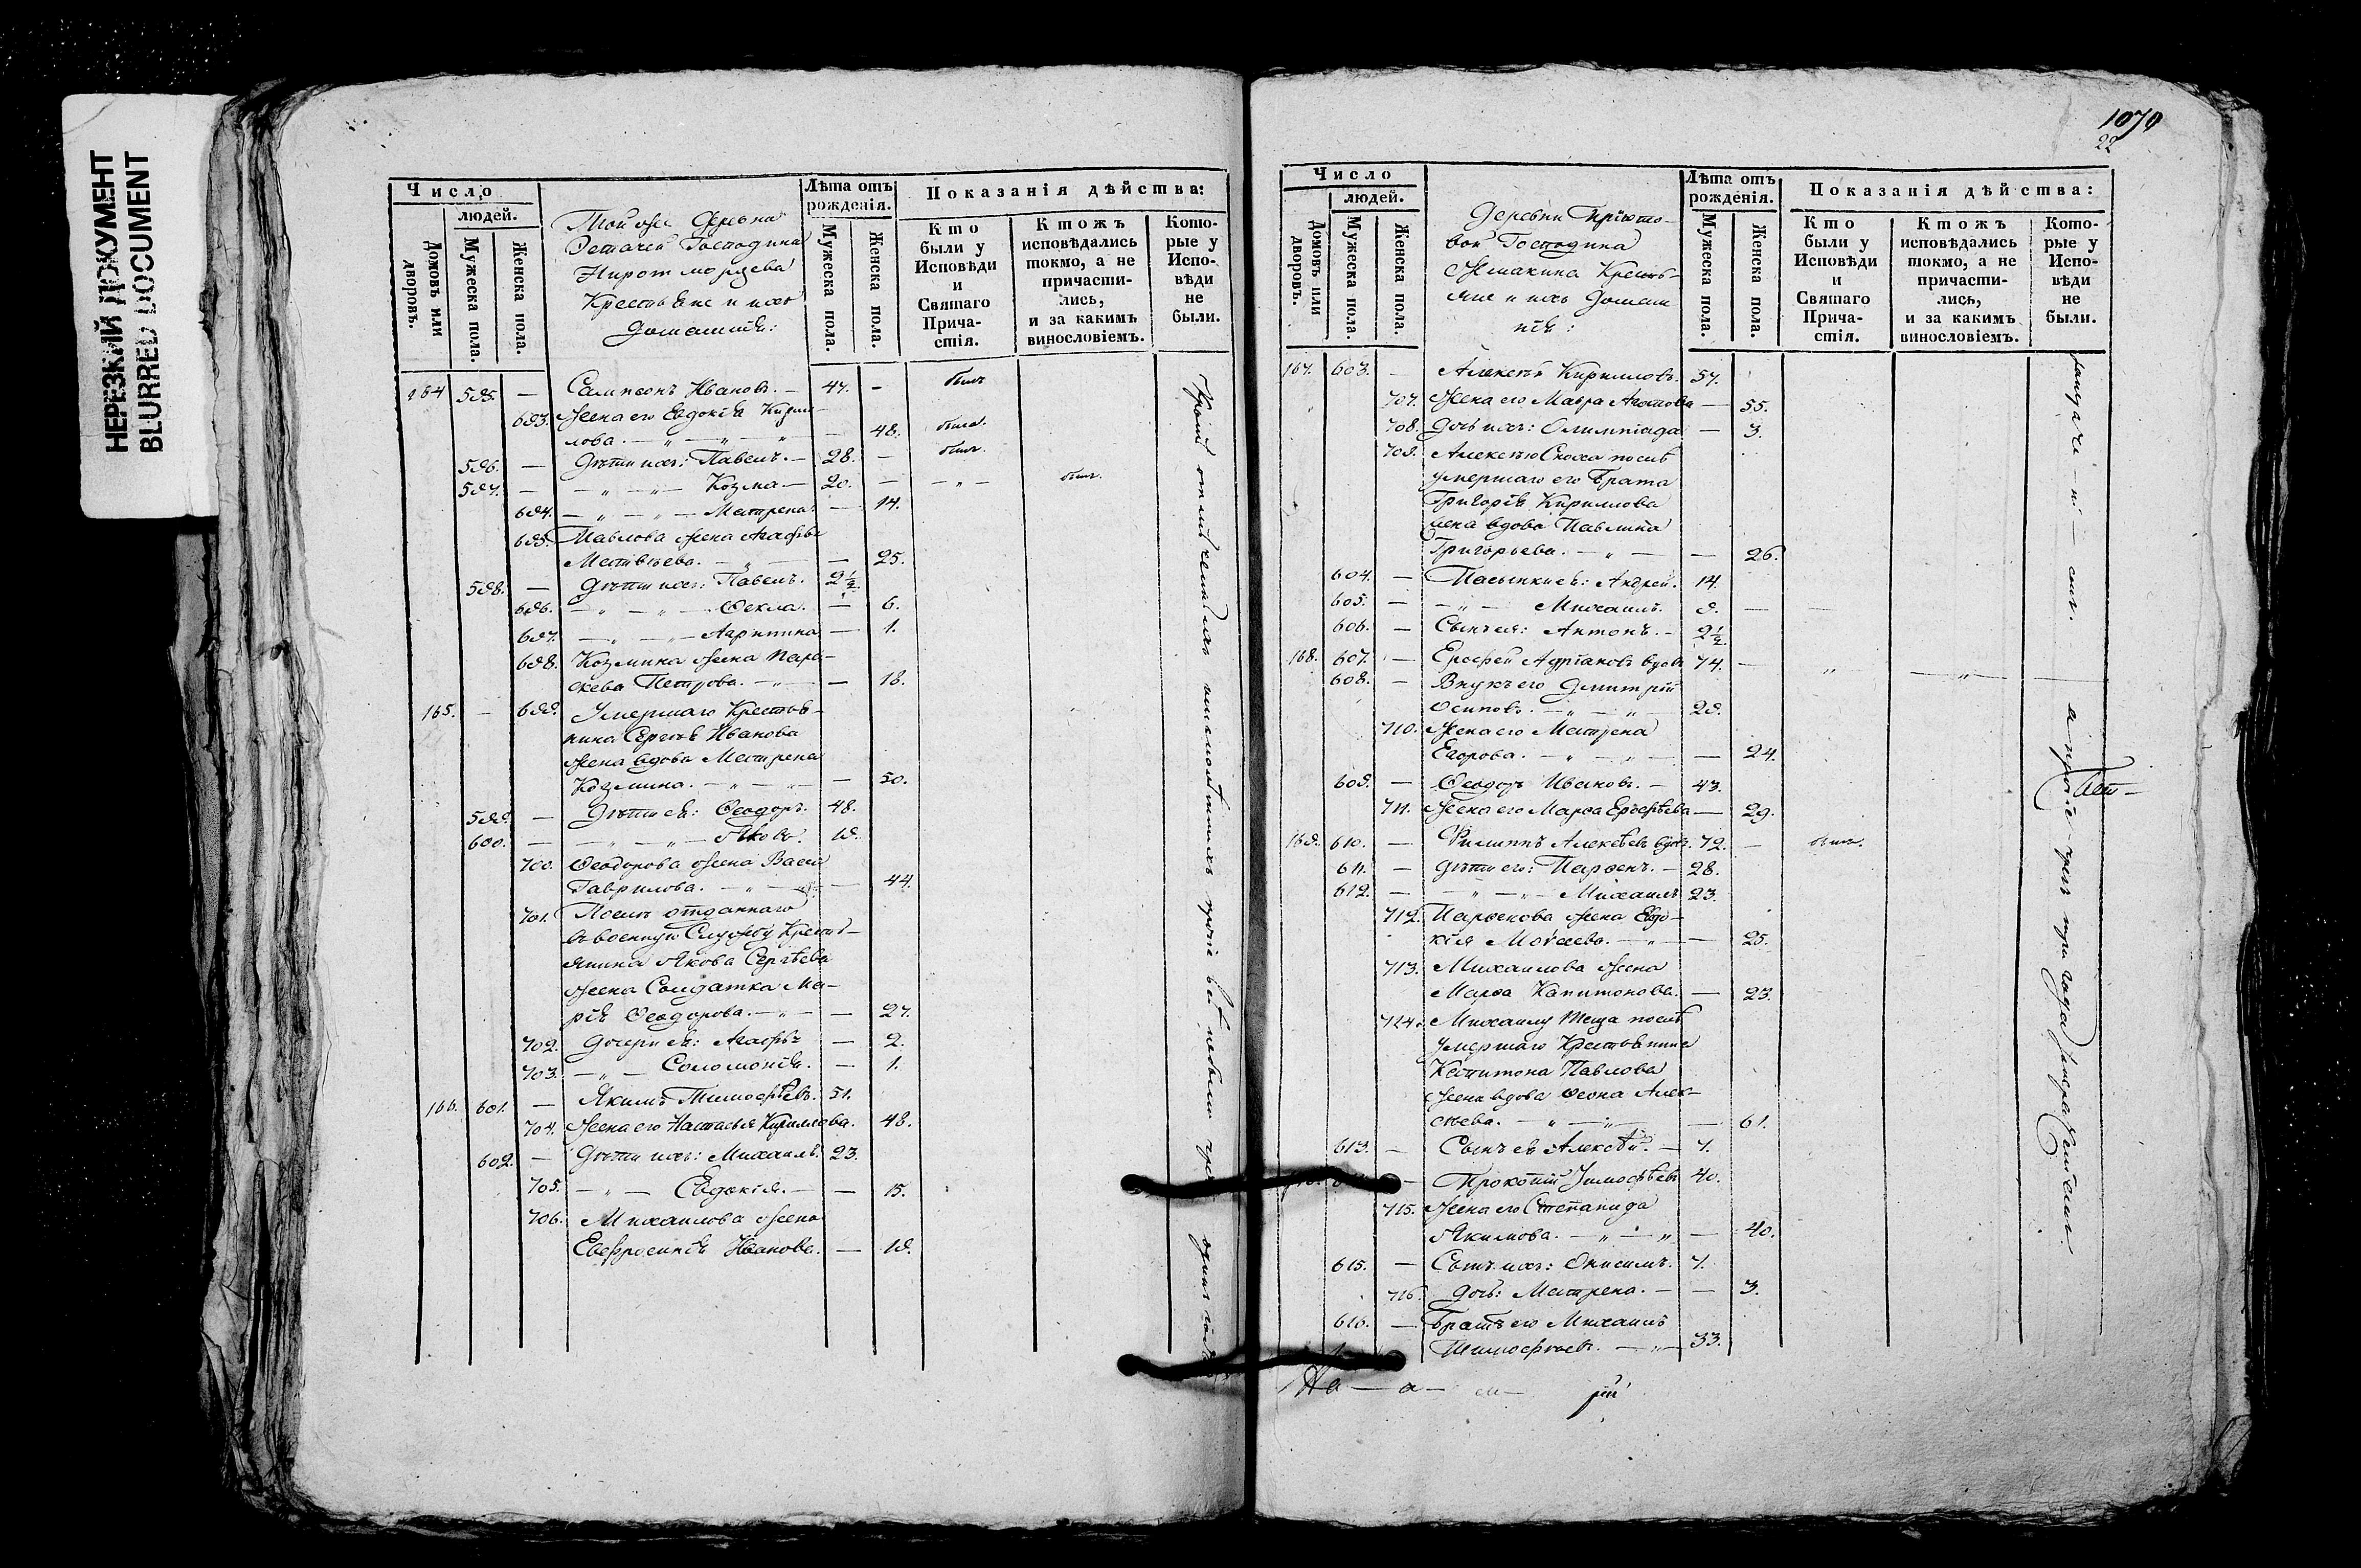 НЕРЕЗКИЙ ДОКУМЕНТ
BLURRED DOCUMENT
Число
людей.
Домовъ или дворовъ.
Мужеска пола.
Женска пола.
Тойже Деревни
Господина
Крестьяне и ихъ
Домашнія:
Лѣта отъ рожденія.
Мужеска пола.
Женска пола.
Показанія дѣйства:
Кто были у Исповѣди и Святаго Причастія.
Ктожъ исповѣдались токмо, а не причастились, и за какимъ винословіемъ.
Которые у Исповѣди не были.
164 595. — Сампсонъ Ивановъ. — 47. — былъ
693. Жена его Евдокія Кирил-
лова. — „ — „ — „ — 48. была.
596. — Дѣти ихъ: Павелъ. — 28. — былъ.
597. — — „ — „ — Козма — 20. — — „ — былъ.
694. — „ — „ — Матрена — 14.
695. Павлова жена Агафья
Матвѣева. — „ — — 25.
598. — Дѣти ихъ: Павелъ. 2 1/2.
696. — „ — „ — Ѳекла. — 6.
697. — „ — „ — Агрипина — 1.
698. Козмина жена Пара-
скева Петрова. — „ — — 18.
165. — 699. Умершаго Крестья-
нина Сергѣя Иванова
жена вдова Матрена
Козмина. — „ — „ — — 50.
599. — Дѣти ея: Ѳеодоръ. 48.
600. — — „ — „ — Яковъ. 19.
700. Ѳеодорова жена Васса
Гаврилова. — „ — — 44.
701. Послѣ отданнаго
въ военную Службу Кресть-
янина Якова Сергѣева
жена Солдатка Ма-
рія Ѳеодорова. — „ — — 27.
702. Дочери ея: Агафья — 2.
703. — „ — Соломонія. — 1.
166. 601. — Якимъ Тимофѣевъ. 51.
704. Жена его Настасья Кириллова. 48.
602. — Дѣти ихъ: Михаилъ. 23.
705. — „ — Евдокія. — — 15.
706. Михаилова жена
Евфросинія Иванова. — 19.
1070
22
Число
людей.
Домовъ или дворовъ.
Мужеска пола.
Женска пола.
Деревни
Господина
Кресть-
яне и ихъ Домаш
нія:
Лѣта отъ рожденія.
Мужеска пола.
Женска пола.
Показанія дѣйства:
Кто были у Исповѣди и Святаго Причастія.
Ктожъ исповѣдались токмо, а не причастились, и за какимъ винословіемъ.
Которые у Исповѣди не были.
167. 603. — Алексѣй Кирилловъ. 57.
707. Жена его Мавра — 55.
708. Дочь ихъ: Олимпіада — 3.
709. Алексѣю Сноха послѣ
умершаго его брата
Григорія Кириллова
жена вдова Павлина
Григорьева. — „ — — 26.
604. — Пасынки ея: Андрей. 14.
605. — — „ — Михаилъ. 9. —
606. — Сынъ ея: Антонъ. — 2 1/2.
168. 607. — Ерофей Адріановъ вдовъ 74. —
608. — Внукъ его Дмитрій
Осиповъ. — „ — „ — 29.
710. Жена его Матрена
Егорова. — „ — „ — — 24.
609. — Ѳеодоръ Ивановъ. — 43.
711. Жена его Марѳа Ерофѣева — 29.
169. 610. — Филиппъ Алексѣевъ вдовъ 72. — былъ.
611. — Дѣти его: Парѳенъ. — 28.
612. — — „ — „ — Михаилъ 23.
712. Парѳенова жена Евдо-
кія Моисеева. — „ — — 25.
713. Михаилова жена
Марѳа Капитонова. — 23.
714. Михаилу теща послѣ
умершаго Крестьянина
Капитона Павлова
жена вдова Алек-
сѣева. — „ — „ — — 61.
613. — Сынъ ея Алексѣй. — 7.
— Прокопій Тимофѣевъ 40.
715. Жена его Степанида
Якимова. — „ — „ — 40.
615. — Сынъ ихъ: Онисимъ. 7.
716. Дочь: Матрена. — — 3.
616. — Братъ его Михаилъ
Тимофѣевъ. — „ — 33.